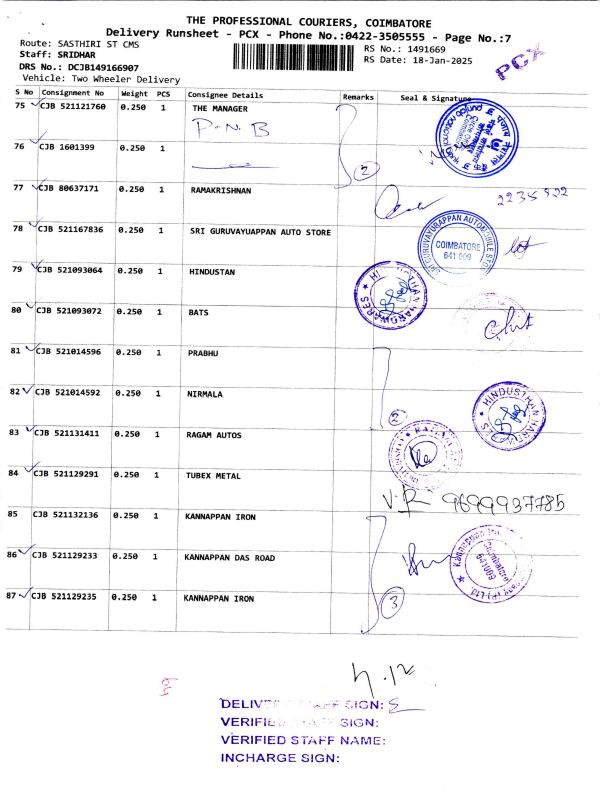 THE PROFESSIONAL COURIERS, COIMBATORE
Delivery Runsheet - PCX - Phone No.:0422-3505555 - Page No.:7
Route: SASTHIRI ST CMS
Staff: SRIDHAR
DRS No.: DCJB149166907
Vehicle: Two Wheeler Delivery
RS No.: 1491669
RS Date: 18-Jan-2025
PCX
S No Consignment No Weight PCS Consignee Details Remarks Seal & Signature
75 CJB 521121760 0.250 1 THE MANAGER
P-N B
76 CJB 1601399 0.250 1
2
77 CJB 80637171 0.250 1 RAMAKRISHNAN
78 CJB 521167836 0.250 1 SRI GURUVAYUAPPAN AUTO STORE
SRI GURUVAYURAPPAN AUTOMOBILE
COIMBATORE
641 009
79 CJB 521093064 0.250 1 HINDUSTAN
80 CJB 521093072 0.250 1 BATS
81 CJB 521014596 0.250 1 PRABHU
82 CJB 521014592 0.250 1 NIRMALA
2
HINDUSTHAN HARDWARES
83 CJB 521131411 0.250 1 RAGAM AUTOS
84 CJB 521129291 0.250 1 TUBEX METAL
V.R 9699937785
85 CJB 521132136 0.250 1 KANNAPPAN IRON
86 CJB 521129233 0.250 1 KANNAPPAN DAS ROAD
Kannappan
Coimbatore
641009
(P) Ltd
87 CJB 521129235 0.250 1 KANNAPPAN IRON
3
SIGN:
VERIFIED STAFF SIGN:
VERIFIED STAFF NAME:
INCHARGE SIGN: